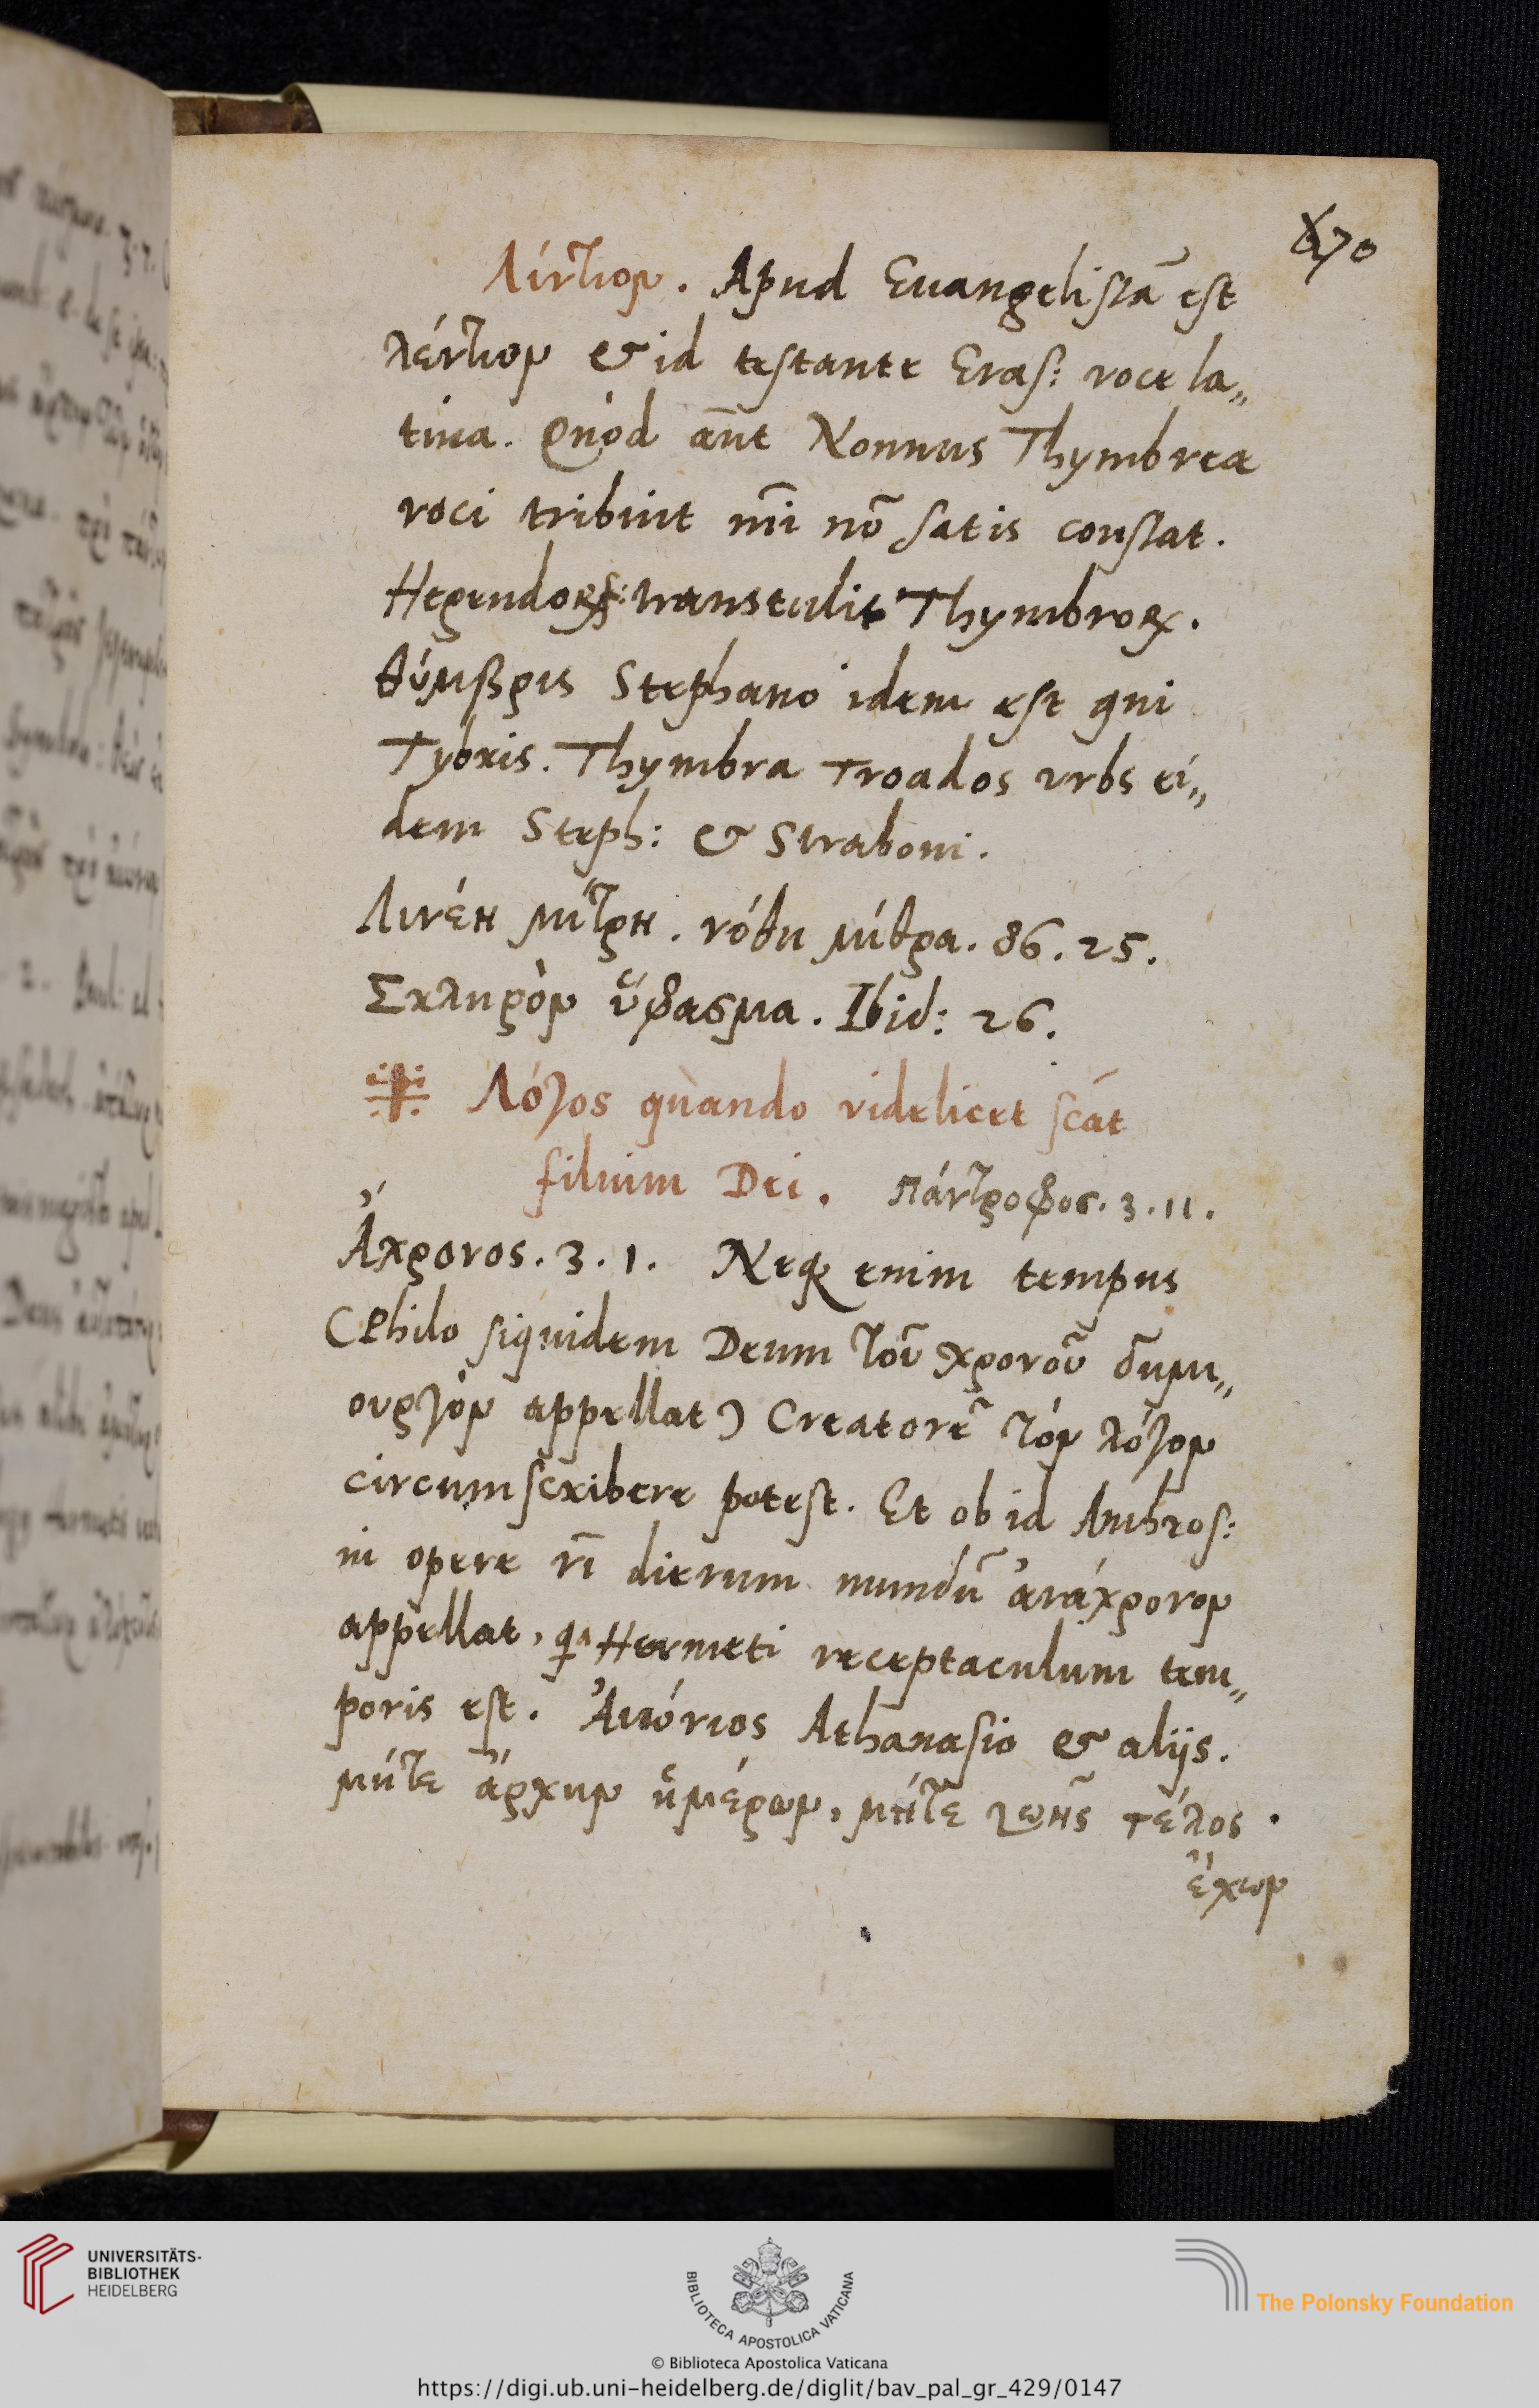 70
Λίντιον. Apud Euangelistā est
λέντιον & id testante Eras: voce la„
tina. Quòd aūt Nonnus Thymbrea
voci tribuit mī nō satis constat.
Hegendorf: transtulit Thymbroꝝ.
θύμβρις Stephano idem est qui
Tybris. Thymbra Troados vrbs ei„
dem Steph: & Straboni.
Λινέη μίτρη. νόθη μίτρα. 86. 25.
Σκληρὸν ὕφασμα. Ibid: 26.
Λόγος quando videlicet scāt
filium Dei. πάντροφος. 3. 11.
Ἄχρονος. 3. 1. Neqꝫ enim tempus
(Philo siquidem Deum τοῦ χρονοῦ δημι„
ουργὸν appellat) Creatorē τὸν λόγον
circumscribere potest. Et ob id Ambros:
in opere vī dierum mundū ἀνάχρονον
appellat, Hermeti receptaculum tem„
poris est. Ἀιώνιος Athanasio & alijs.
μήτε ἄρχην ἡμέρων, μήτε ζωῆς τέλος.
ἔχων
UNIVERSITÄTS-
BIBLIOTHEK
HEIDELBERG
BIBLIOTECA APOSTOLICA VATICANA
The Polonsky Foundation
© Biblioteca Apostolica Vaticana
https://digi.ub.uni-heidelberg.de/diglit/bav_pal_gr_429/0147